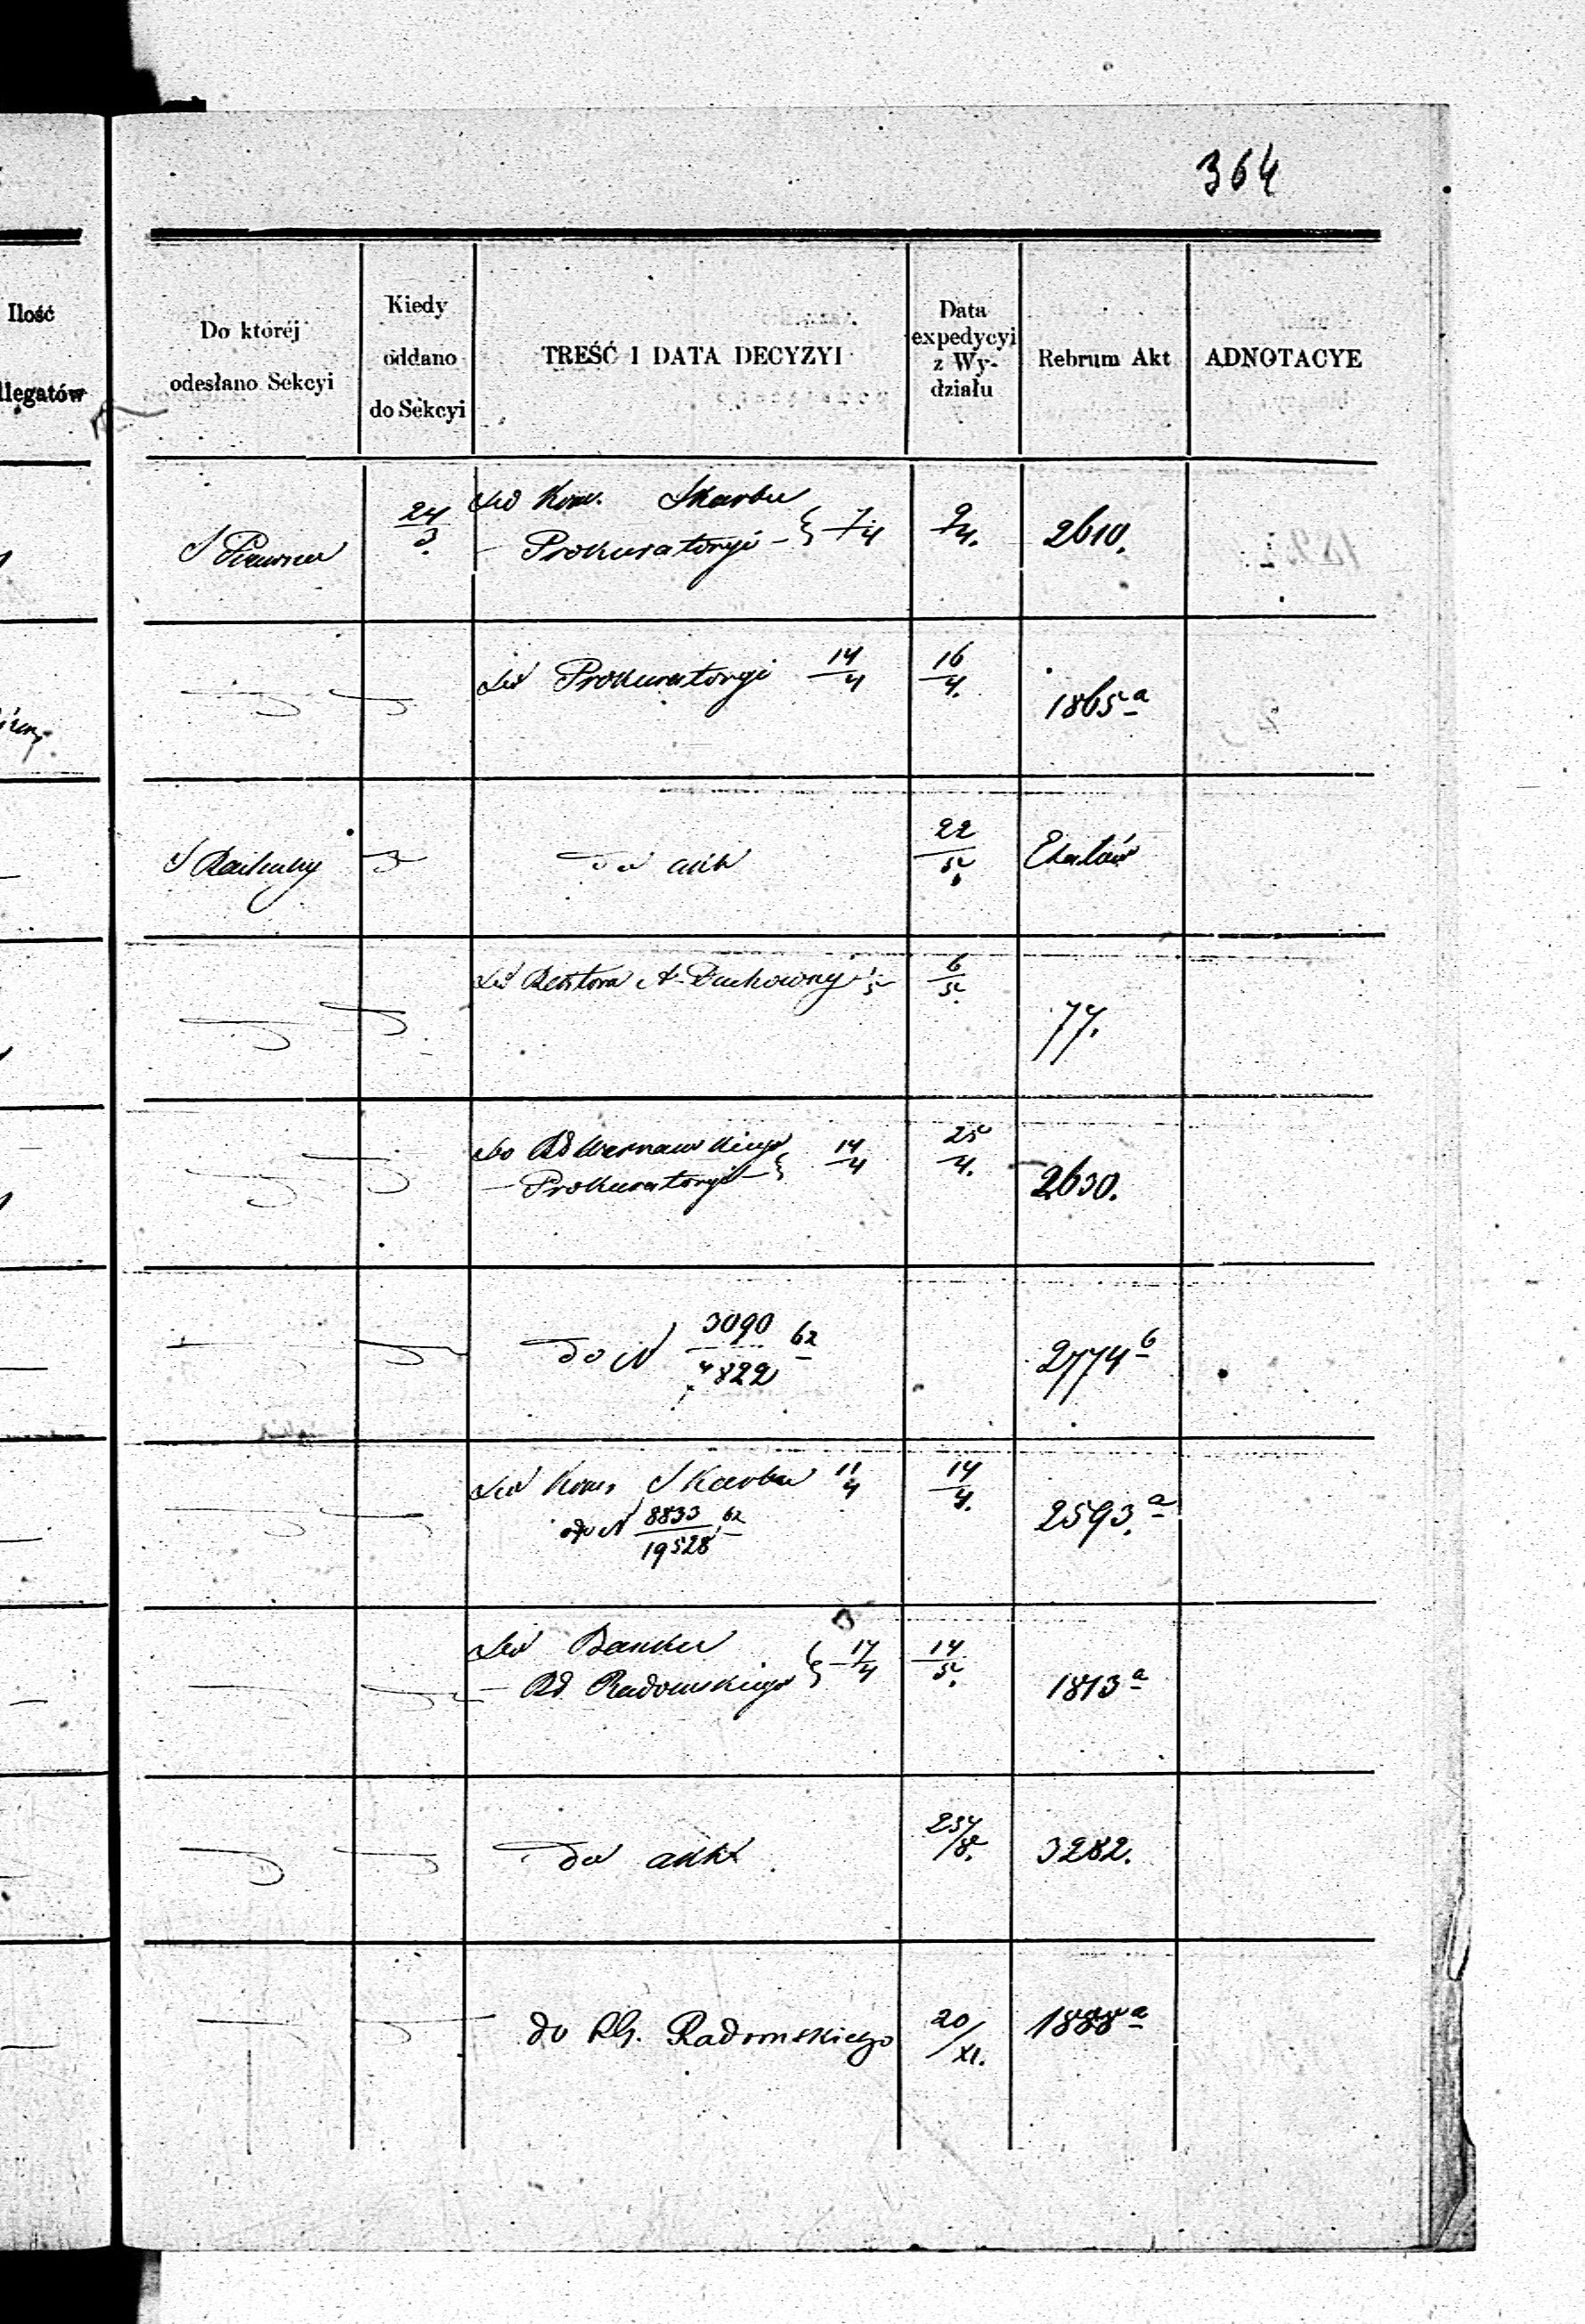 364
Ilość
llegatów
Do którėj
odesłano Sekcyi
Kiedy
oddano
do Sekcyi
TREŚĆ I DATA DECYZYI
Data
expedycyi
z Wy-
działu
Rebrum Akt
ADNOTACYE
S Prawna
24/3
Do Kom. Skarbu
— Prokuratoryi — 7/4
9/4.
2610.
Do Prokuratoryi 14/4
16/4.
1865 a
S Rachuby
do akt
22/5
Etatów
Do Rektora A. Duchowny 1/5
6/5.
77.
Do Rd Warszawskiego
— Prokuratoryi — 14/4
25/4.
2630.
do N 3090/4822 62
2774 b
Do Kom. Skarbu 11/4
do N 8833/19528 62
14/4.
2593. a
Do Banku
— Rd Radomskiego 17/4
14/5.
1813 a
do akt
3282.
do RG. Radomskiego
20/XI.
1888 a